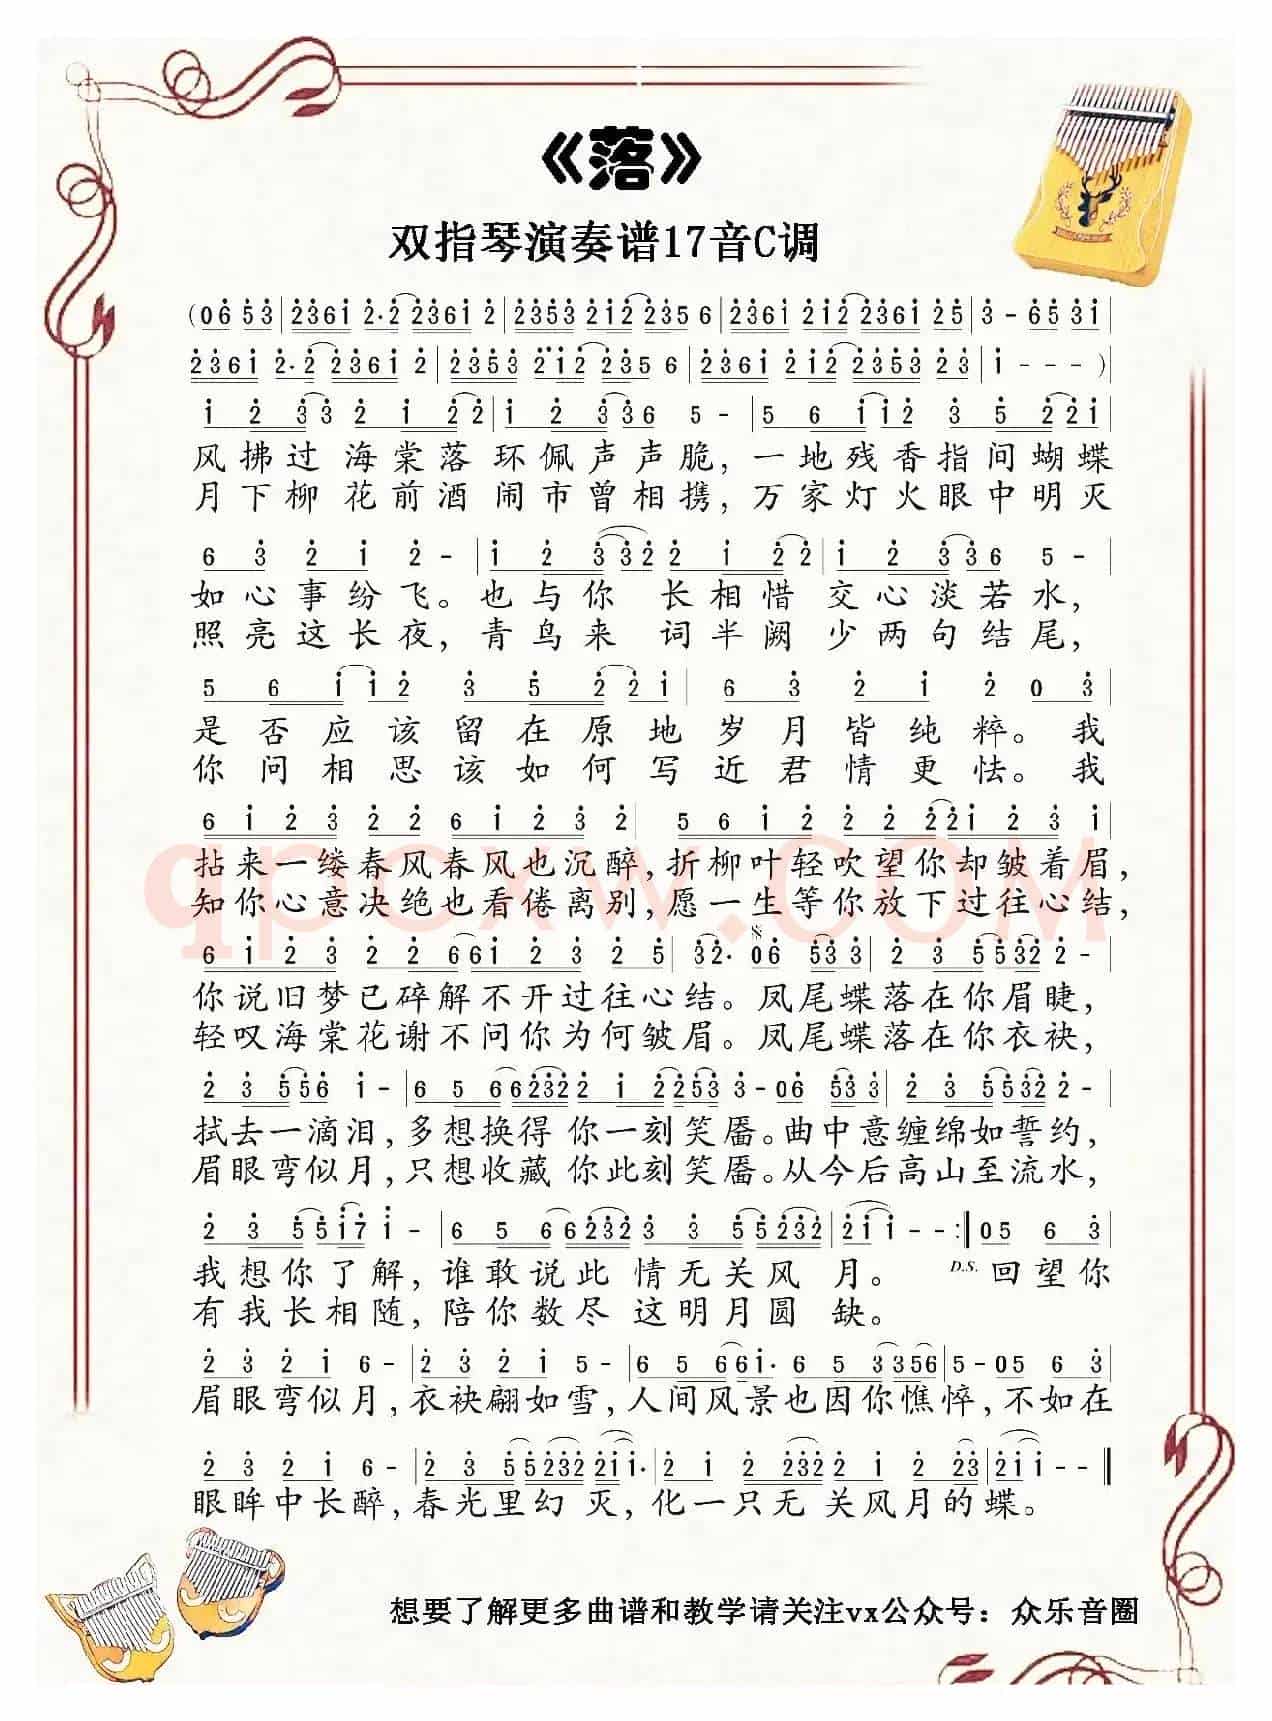 《落》
双指琴演奏谱17音C调
(0653|2361 2·2 2361 2|2353 212 2356|2361 212 2361 25|3 - 6531|
2361 2·2 2361 2|2353 212 235 6|2361 212 2353 23|1 - - -)
1 2 33 2 1 22|1 2 336 5 -|5 6 112 3 5 221|
风拂过 海棠落 环佩声声脆，一地残香指间蝴蝶
月下柳 花前酒 闹市曾相携，万家灯火眼中明灭
6 3 2 1 2 -|1 2 332 2 1 22|1 2 336 5 -|
如心事纷飞。也与你 长相惜 交心淡若水，
照亮这长夜，青鸟来 词半阙 少两句结尾，
5 6 112 3 5 221|6 3 2 1 2 03|
是否应该留在原地岁月皆纯粹。我
你问相思该如何写近君情更怯。我
6123 22 6123 2|5612 2 2 221 2 3 1|
拈来一缕春风春风也沉醉，折柳叶轻吹望你却皱着眉，
知你心意决绝也看倦离别，愿一生等你放下过往心结，
6123 2 2 661 2 3 2 5|32· 06 533|2 3 55322 -|
你说旧梦已碎解不开过往心结。凤尾蝶落在你眉睫，
轻叹海棠花谢不问你为何皱眉。凤尾蝶落在你衣袂，
2 3 556 1 -|6 5 66232 2 1 2253 3- 06 533|2 3 55322 -|
拭去一滴泪，多想换得 你一刻笑靥。曲中意缠绵如誓约，
眉眼弯似月，只想收藏 你此刻笑靥。从今后高山至流水，
2 3 5517 1 -|6 5 66232 3 3 55232|211 - -:|05 6 3|
我想你了解，谁敢说此 情无关风 月。 D.S. 回望你
有我长相随，陪你数尽 这明月圆 缺。
2 3 2 1 6 -|2 3 2 1 5 -|6 5 661· 6 5 3356|5 - 05 6 3|
眉眼弯似月，衣袂翩如雪，人间风景也因你憔悴，不如在
2 3 2 1 6 -|2 3 55232 211·|2 1 2 232 2 1 2 23|211 - -‖
眼眸中长醉，春光里幻 灭，化一只无 关风月的蝶。
想要了解更多曲谱和教学请关注vx公众号：众乐音圈
qpcxw.com